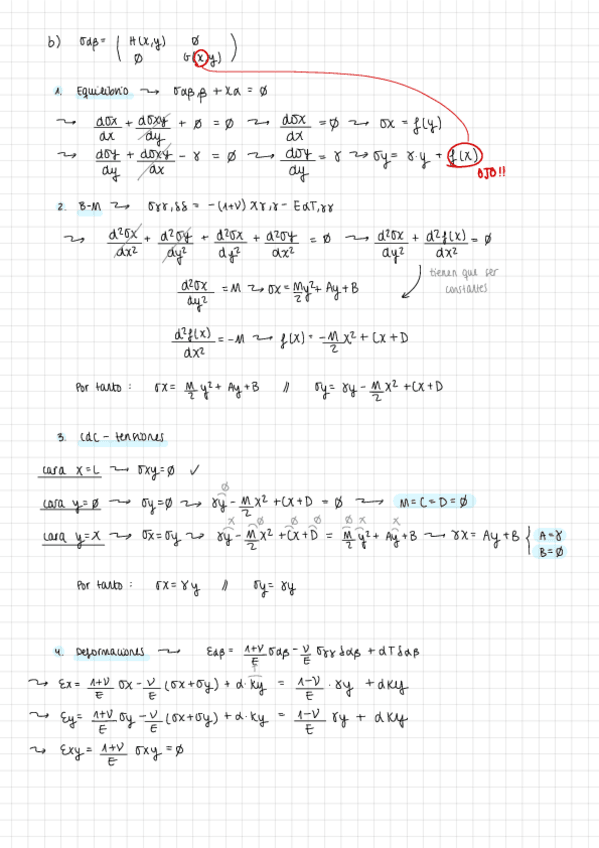 b) σαβ = ( H(x,y) ∅
∅ G(x,y) )
1. Equilibrio ⟿ σαβ,β + Xα = ∅
⟿ dσx/dx + dσxy/dy + ∅ = ∅ ⟿ dσx/dx = ∅ ⟿ σx = f(y)
⟿ dσy/dy + dσxy/dx - γ = ∅ ⟿ dσy/dy = γ ⟿ σy = γ·y + f(x)
OJO!!
2. B-M ⟿ σγγ,δδ = -(1+ν) Xγ,γ - EαT,γγ
⟿ d²σx/dx² + d²σy/dy² + d²σx/dy² + d²σy/dx² = ∅ ⟿ d²σx/dy² + d²f(x)/dx² = ∅
tienen que ser
constantes
d²σx/dy² = M ⟿ σx = M/2 y² + Ay + B
d²f(x)/dx² = -M ⟿ f(x) = -M/2 x² + Cx + D
Por tanto : σx = M/2 y² + Ay + B // σy = γy - M/2 x² + Cx + D
3. CdC - tensiones
cara x=L ⟿ σxy = ∅ ✓
cara y=∅ ⟿ σy = ∅ ⟿ γy - M/2 x² + Cx + D = ∅ ⟿ M = C = D = ∅
cara y=x ⟿ σx = σy ⟿ γy - M/2 x² + Cx + D = M/2 y² + Ay + B ⟿ γx = Ay + B { A = γ
B = ∅
Por tanto : σx = γy // σy = γy
4. Deformaciones ⟿ εαβ = 1+ν/E σαβ - ν/E σγγ δαβ + αT δαβ
⟿ εx = 1+ν/E σx - ν/E (σx + σy) + α·ky = 1-ν/E · γy + αky
⟿ εy = 1+ν/E σy - ν/E (σx + σy) + α·ky = 1-ν/E γy + αky
⟿ εxy = 1+ν/E σxy = ∅